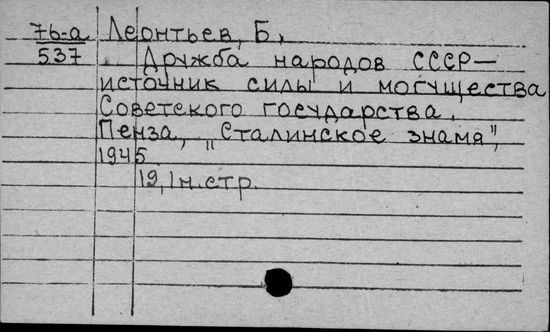 76-а Леонтьев, Б.
537 Дружба народов СССР—
источник силы и могущества
Советского государства.
Пенза, "Сталинское знамя",
1945.
19, 1 н. стр.